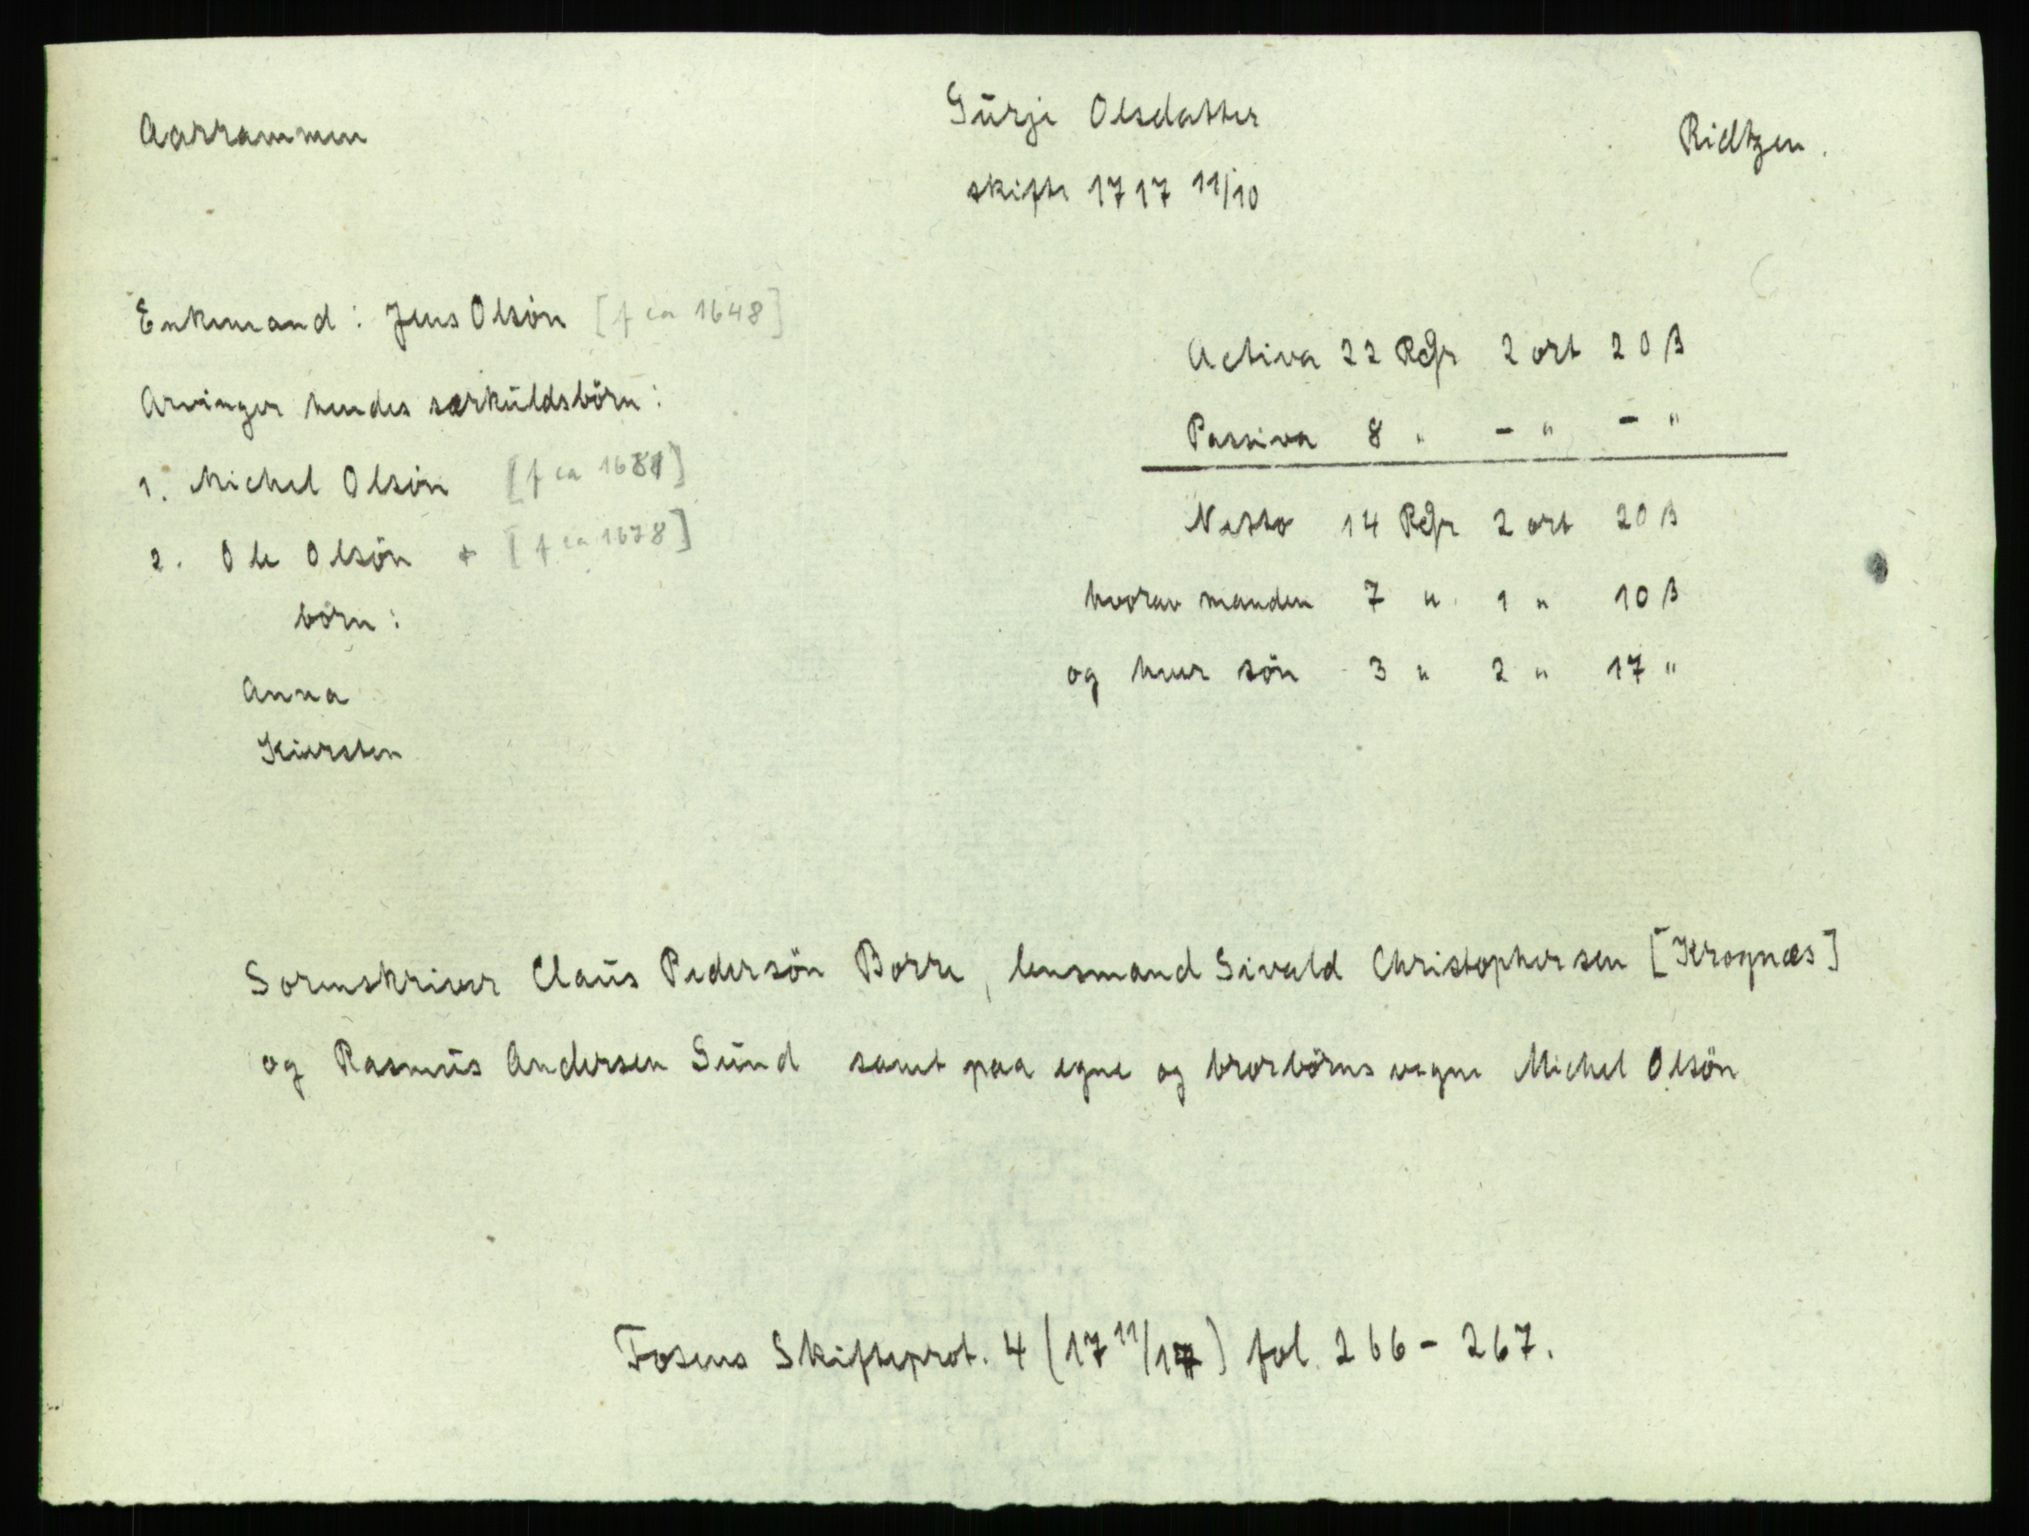 Aarrammen
Gūrje Olsdatter
Ridtzen.
skifte 1717 11/10
Enkemand: Jens Olsön [f ca 1648]
Arvinger hendes særkūldsbörn:
1. Michel Olsön [f ca 1681]
2. Ole Olsön + [f ca 1678]
börn:
Anna
Kiersten
Activa 22 Rdr 2 ort 20 ß
Passiva 8 " - " - "
Netto 14 Rdr 2 ort 20 ß
hvorav manden 7 " 1 " 10 ß
og hver sön 3 " 2 " 17 "
Sorenskriver Claūs Pedersön Borre, lensmand Sivald Christophersen [Krognæs]
og Rasmūs Andersen Sūnd samt paa egne og brorbörns vegne Michel Olsön
Fosens Skifteprot. 4 (17 11/17) fol. 266-267.